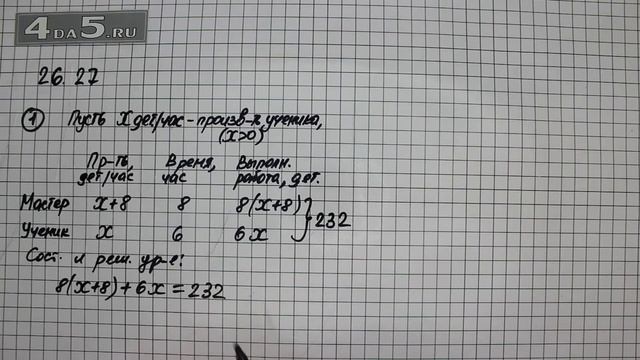 4DA5.RU
26.27
① Пусть X дет/час - произв-ть ученика,
(X>0)
Пр-ть, Время, Выполн.
дет/час час работа, дет.
Мастер x+8 8 8(x+8)
Ученик x 6 6x } 232
Сост. и реш. ур-е:
8(x+8)+6x=232